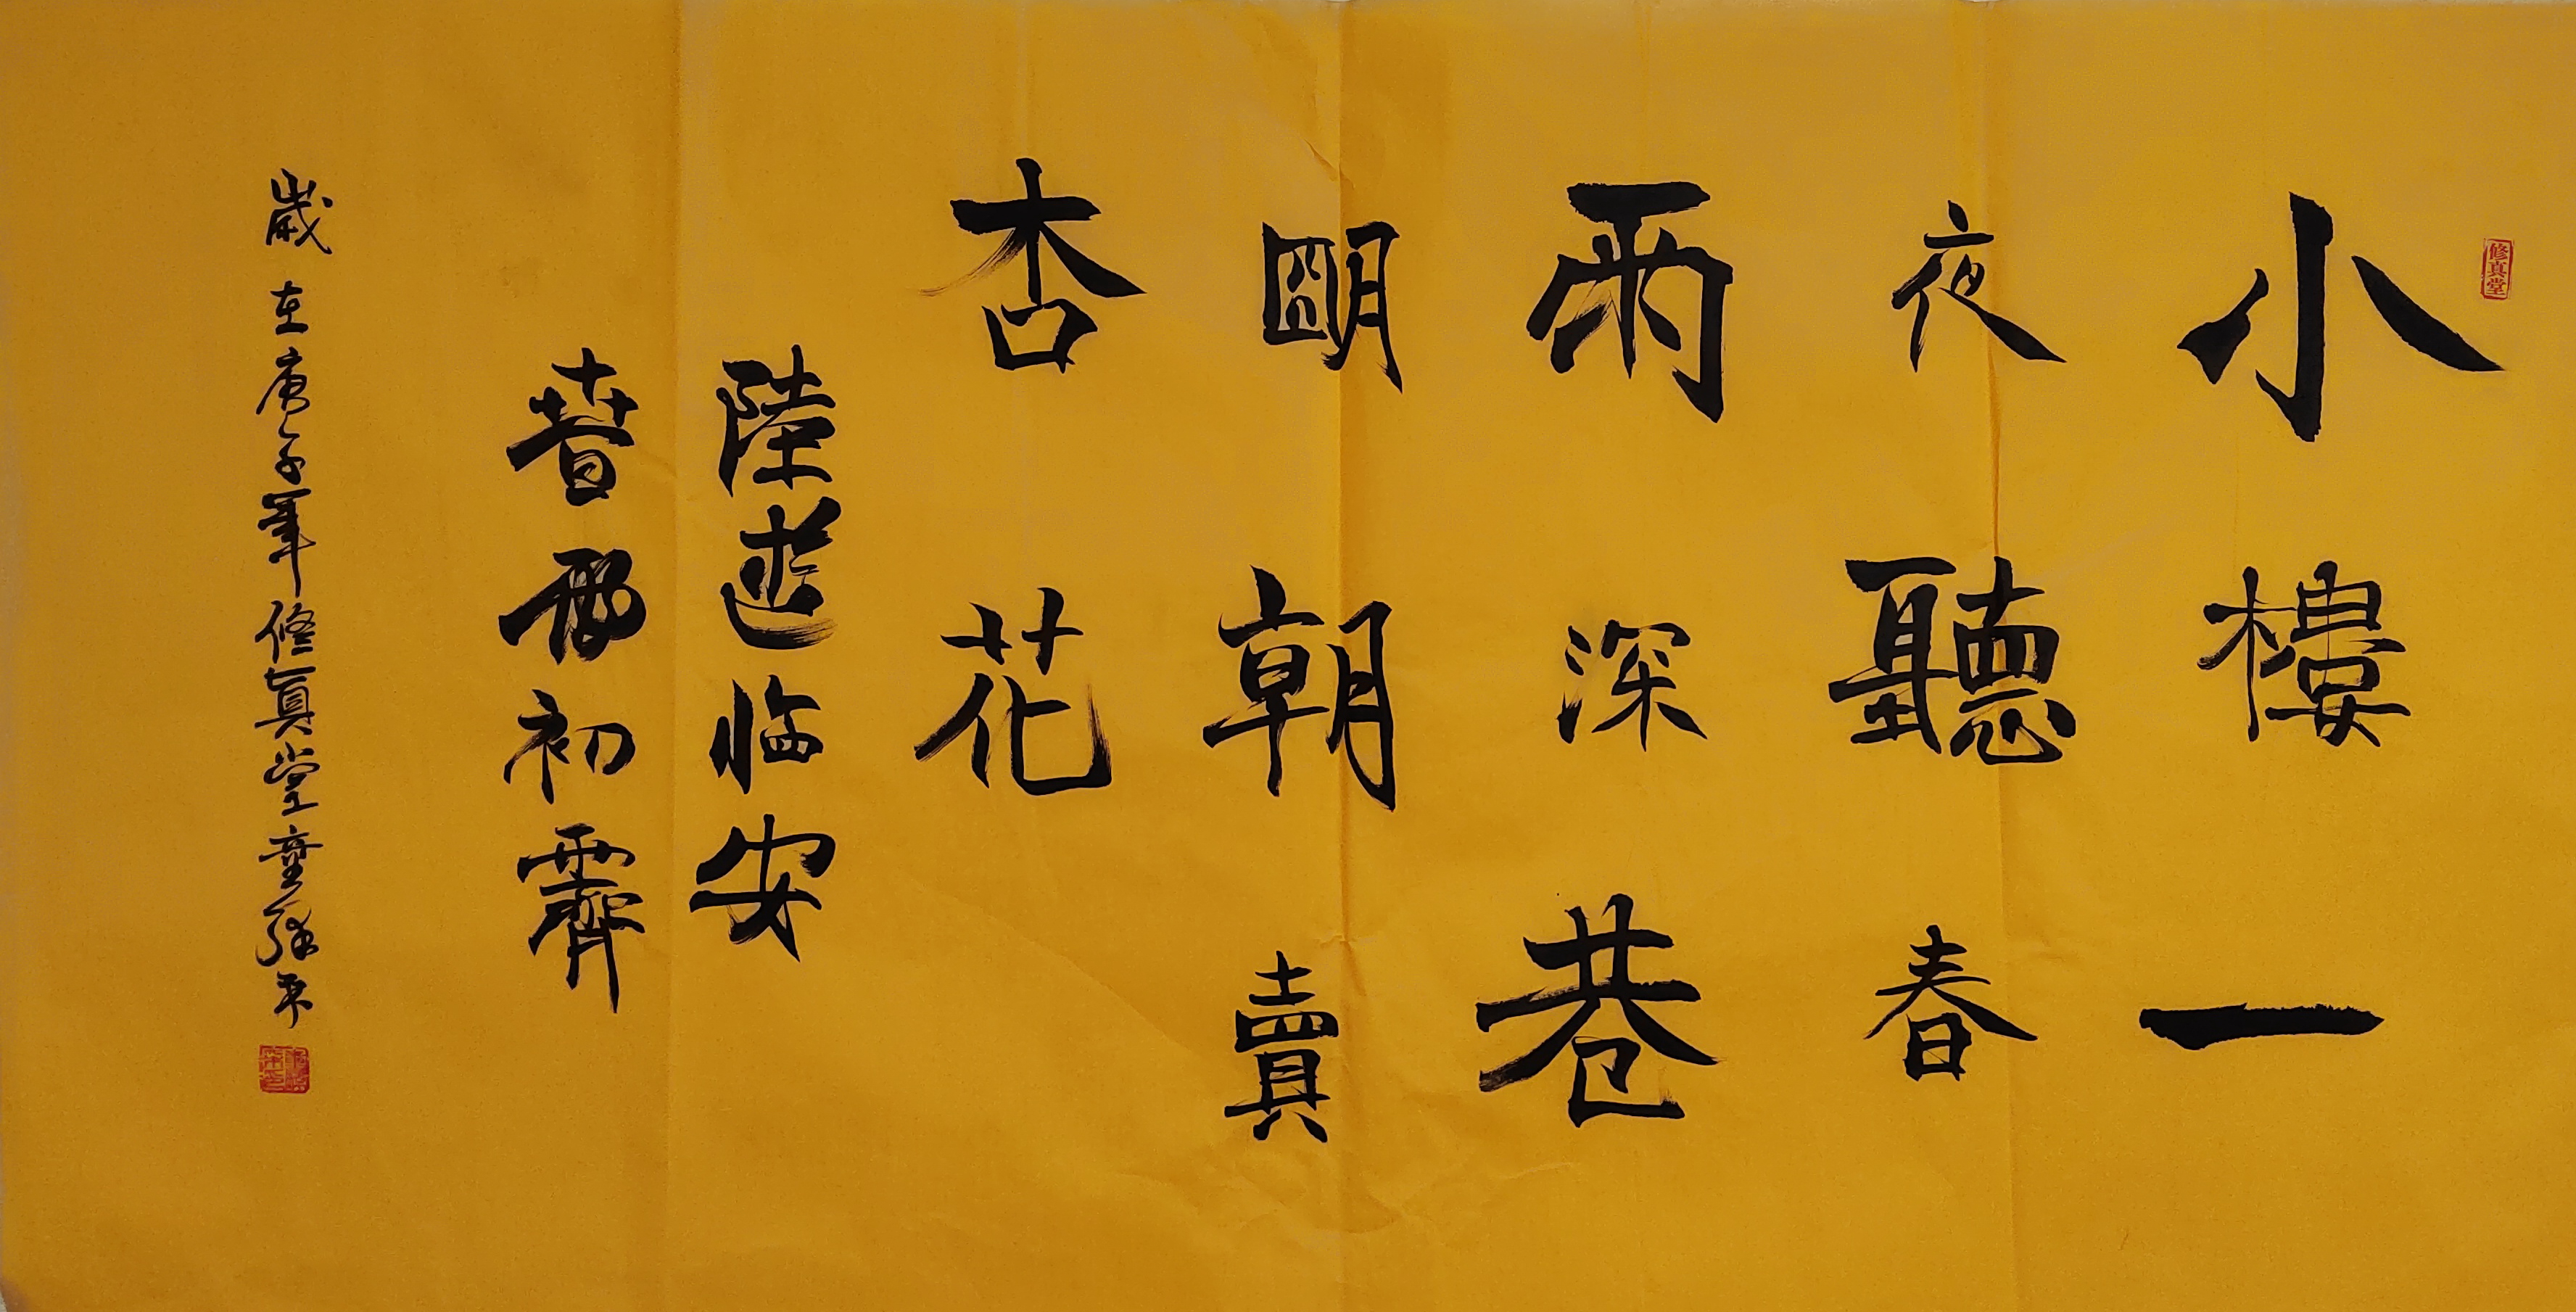 修真堂
小樓一
夜聽春
雨深巷
朙朝賣
杏花
陸游临安
春雨初霽
歲在庚子年修真堂童